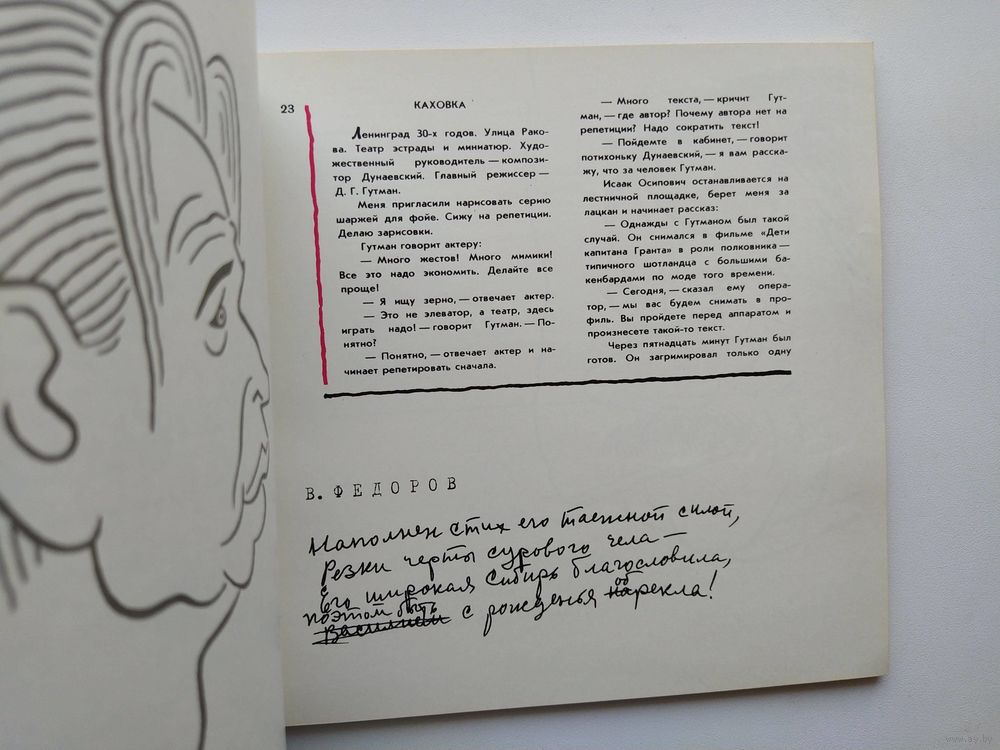 23
КАХОВКА
Ленинград 30-х годов. Улица Рако-
ва. Театр эстрады и миниатюр. Худо-
жественный руководитель — компози-
тор Дунаевский. Главный режиссер —
Д. Г. Гутман.
Меня пригласили нарисовать серию
шаржей для фойе. Сижу на репетиции.
Делаю зарисовки.
Гутман говорит актеру:
— Много жестов! Много мимики!
Все это надо экономить. Делайте все
проще!
— Я ищу зерно, — отвечает актер.
— Это не элеватор, а театр, здесь
играть надо! — говорит Гутман. — По-
нятно?
— Понятно, — отвечает актер и на-
чинает репетировать сначала.
— Много текста, — кричит Гут-
ман, — где автор? Почему автора нет на
репетиции? Надо сократить текст!
— Пойдемте в кабинет, — говорит
потихоньку Дунаевский, — я вам расска-
жу, что за человек Гутман.
Исаак Осипович останавливается на
лестничной площадке, берет меня за
лацкан и начинает рассказ:
— Однажды с Гутманом был такой
случай. Он снимался в фильме «Дети
капитана Гранта» в роли полковника —
типичного шотландца с большими ба-
кенбардами по моде того времени.
— Сегодня, — сказал ему опера-
тор, — мы вас будем снимать в про-
филь. Вы пройдете перед аппаратом и
произнесете такой-то текст.
Через пятнадцать минут Гутман был
готов. Он загримировал только одну
В. ФЕДОРОВ
Наполнен стих его таежной силой,
Резки черты сурового чела —
Его широкая Сибирь благословила,
поэтом быть об
Василием с рожденья нарекла!
www.ay.by